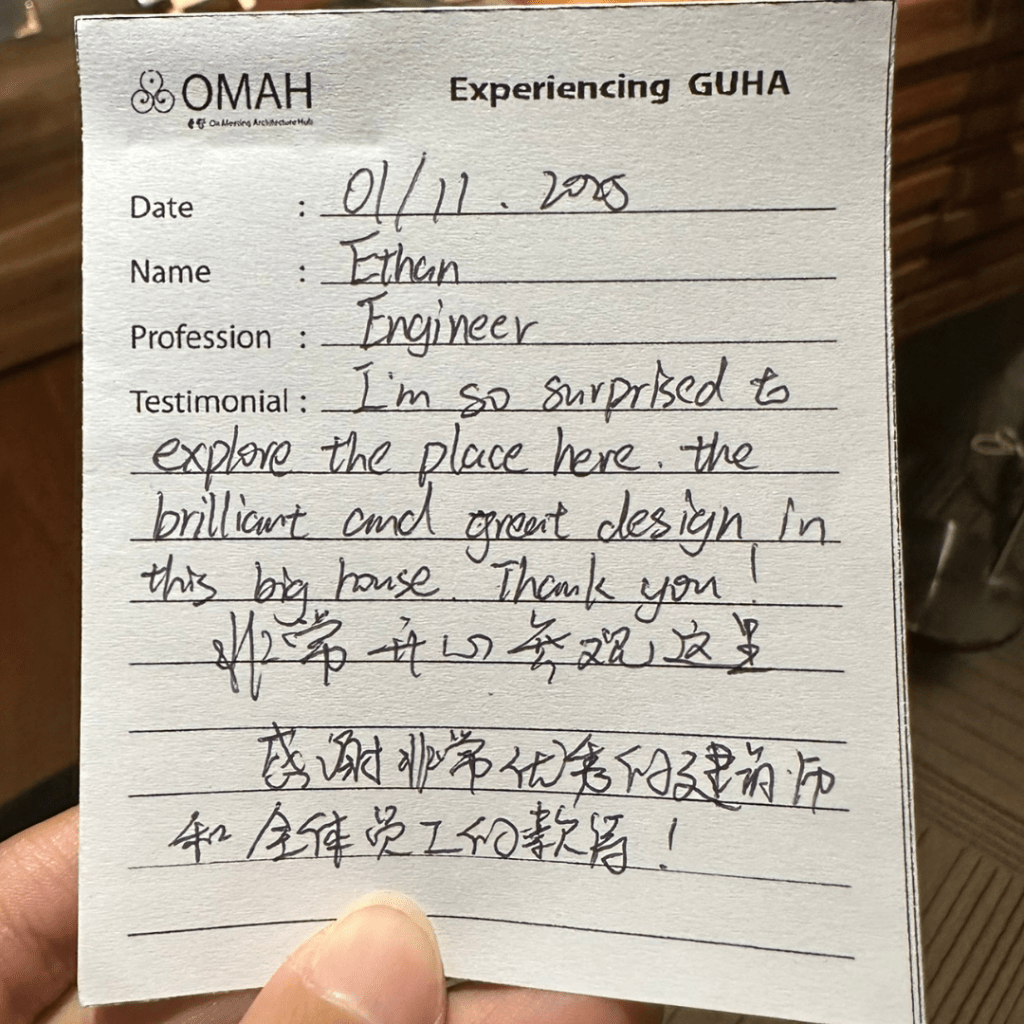 OMAH
On Meeting Architecture Hub
Experiencing GUHA
Date : 01/11. 2025
Name : Ethan
Profession : Engineer
Testimonial : I'm so surprised to
explore the place here. the
brilliant and great design in
this big house. Thank you!
非常开心参观这里
感谢非常优秀的建筑师
和全体员工的款待!